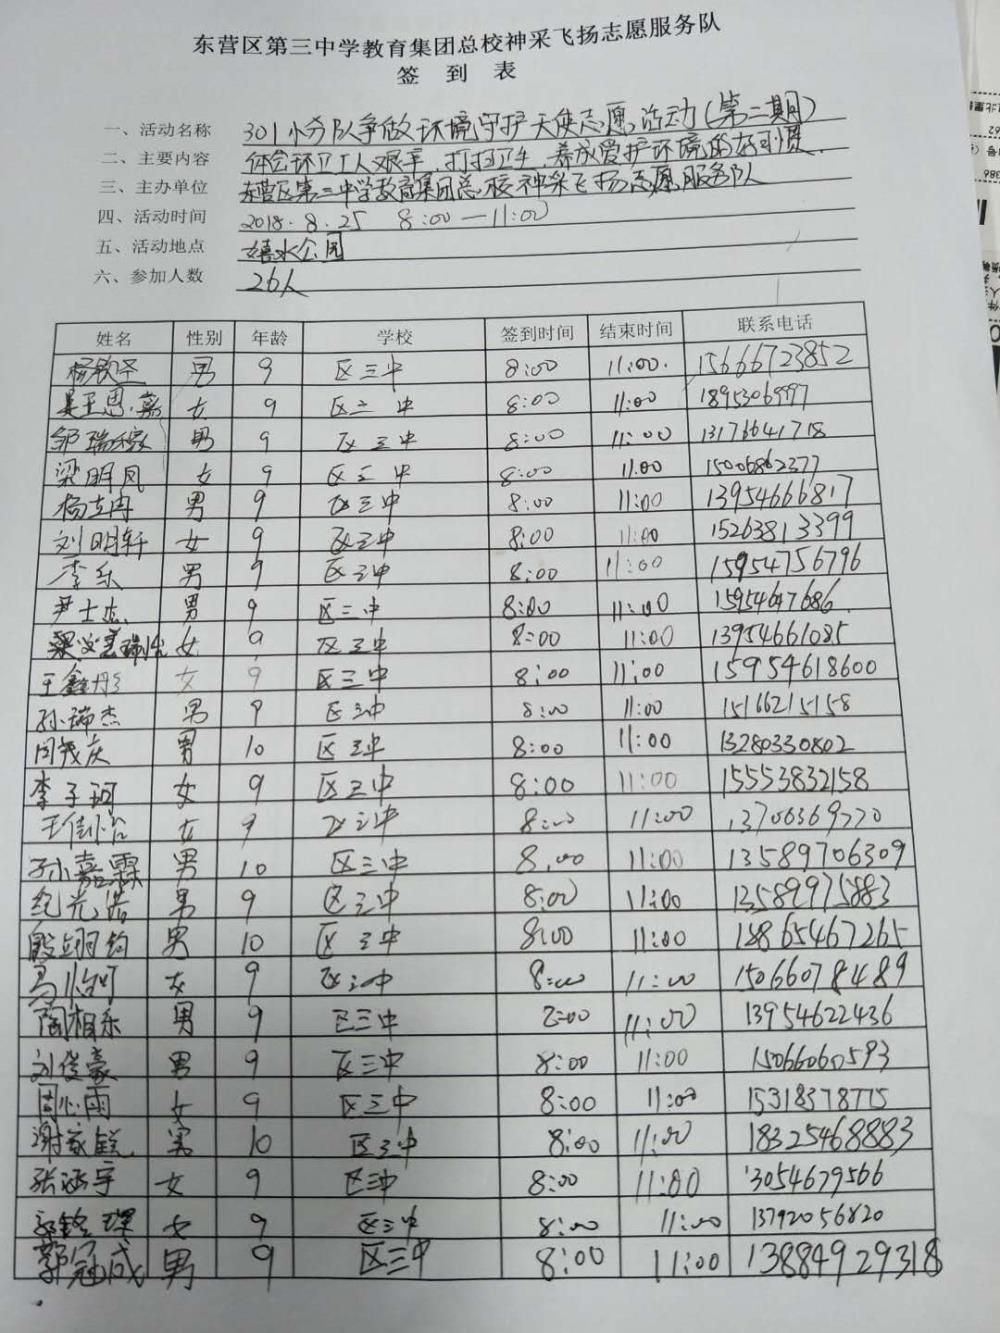 东营区第三中学教育集团总校神采飞扬志愿服务队
签 到 表
一、活动名称 301小分队争做环境守护天使志愿活动(第二期)
二、主要内容 体会环卫工人艰辛，打扫卫生，养成爱护环境的好习惯.
三、主办单位 东营区第三中学教育集团总校神采飞扬志愿服务队
四、活动时间 2018.8.25 8:00—11:00
五、活动地点 嬉水公园
六、参加人数 26人
姓名 性别 年龄 学校 签到时间 结束时间 联系电话
男 9 区三中 8:00 11:00. 15666723852
女 9 区三中 8:00 11:00 18953069997
男 9 区三中 8:00 11:00 13176641718
梁明凤 女 9 区三中 8:00 11:00 15006862377
杨立冉 男 9 区三中 8:00 11:00 13954666817
刘明轩 女 9 区三中 8:00 11:00 15263813399
李乐 男 9 区三中 8:00 11:00 15954756796
尹士杰 男 9 区三中 8:00 11:00 15954647686
女 9 区三中 8:00 11:00 13954661085
王鑫彤 女 9 区三中 8:00 11:00 15954618600
孙瑞杰 男 9 区三中 8:00 11:00 15166215158
周茂庆 男 10 区三中 8:00 11:00 13280330802
李子珂 女 9 区三中 8:00 11:00 15553832158
王佳怡 女 9 区三中 8:00 11:00 13706369770
孙嘉霖 男 10 区三中 8:00 11:00 13589706309
纪光浩 男 9 区三中 8:00 11:00 13589975883
殷翊钧 男 10 区三中 8:00 11:00 18865467265
马怡可 女 9 区三中 8:00 11:00 15066078489
周相乐 男 9 区三中 8:00 11:00 13954622436
刘俊豪 男 9 区三中 8:00 11:00 15066060593
周心雨 女 9 区三中 8:00 11:00 15318378775
谢家锐 男 10 区三中 8:00 11:00 18325468883
张涵宇 女 9 区三中 8:00 11:00 13054679566
女 9 区三中 8:00 11:00 13792056820
郭冠成 男 9 区三中 8:00 11:00 13884929318